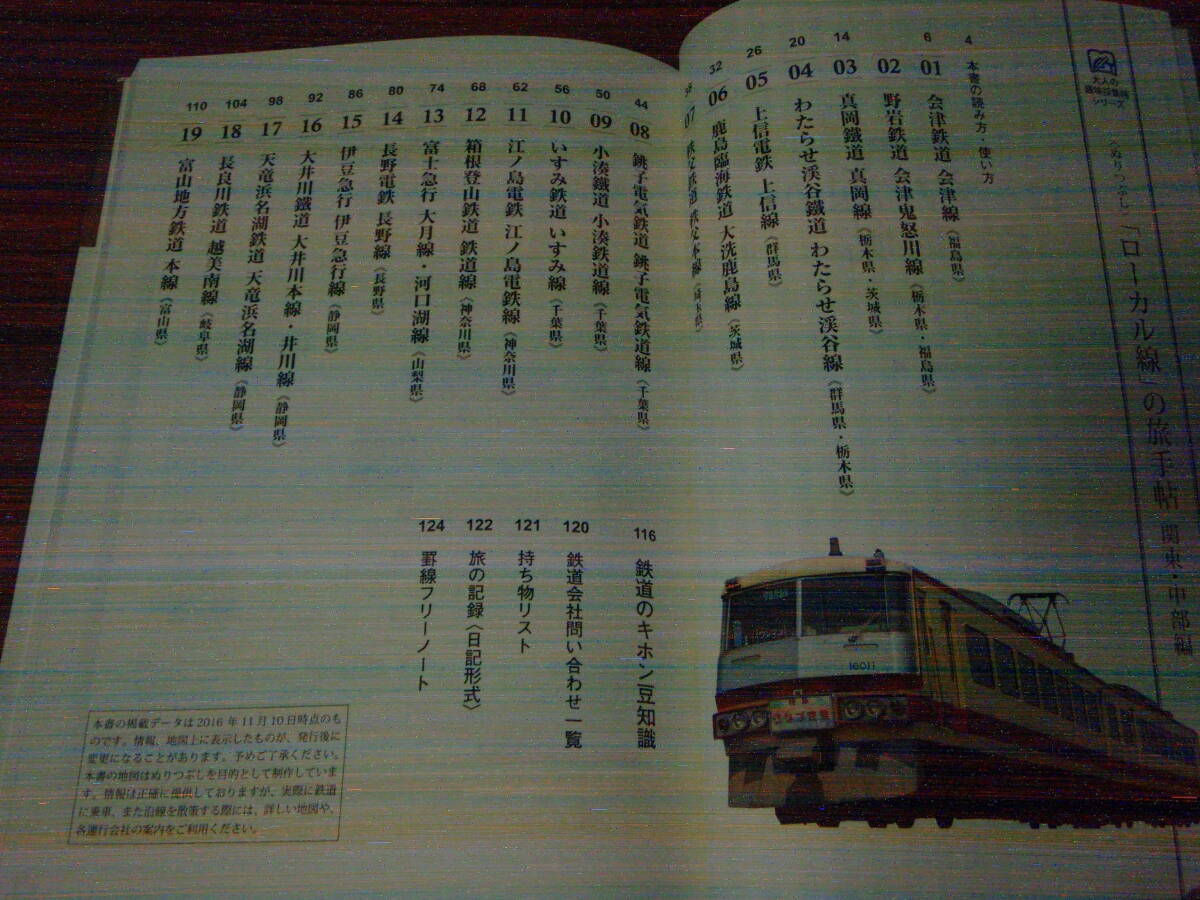 大人の
趣味採集帳
シリーズ
〈ぬりつぶし〉「ローカル線」の旅手帖 関東・中部編
4 本書の読み方・使い方
6 01 会津鉄道 会津線〈福島県〉
02 野岩鉄道 会津鬼怒川線〈栃木県・福島県〉
14 03 真岡鐵道 真岡線〈栃木県・茨城県〉
20 04 わたらせ渓谷鐵道 わたらせ渓谷線〈群馬県・栃木県〉
26 05 上信電鉄 上信線〈群馬県〉
32 06 鹿島臨海鉄道 大洗鹿島線〈茨城県〉
38 07
44 08 銚子電気鉄道 銚子電気鉄道線〈千葉県〉
50 09 小湊鐵道 小湊鐵道線〈千葉県〉
56 10 いすみ鉄道 いすみ線〈千葉県〉
62 11 江ノ島電鉄 江ノ島電鉄線〈神奈川県〉
68 12 箱根登山鉄道 鉄道線〈神奈川県〉
74 13 富士急行 大月線・河口湖線〈山梨県〉
80 14 長野電鉄 長野線〈長野県〉
86 15 伊豆急行 伊豆急行線〈静岡県〉
92 16 大井川鐵道 大井川本線・井川線〈静岡県〉
98 17 天竜浜名湖鉄道 天竜浜名湖線〈静岡県〉
104 18 長良川鉄道 越美南線〈岐阜県〉
110 19 富山地方鉄道 本線〈富山県〉
116 鉄道のキホン豆知識
120 鉄道会社問い合わせ一覧
121 持ち物リスト
122 旅の記録〈日記形式〉
124 罫線フリーノート
本書の掲載データは2016年11月10日時点のも
のです。情報、地図上に表示したものが、発行後に
変更になることがあります。予めご了承ください。
本書の地図はぬりつぶしを目的として制作していま
す。情報は正確に提供しておりますが、実際に鉄道
に乗車、また沿線を散策する際には、詳しい地図や、
各運行会社の案内をご利用ください。
16011